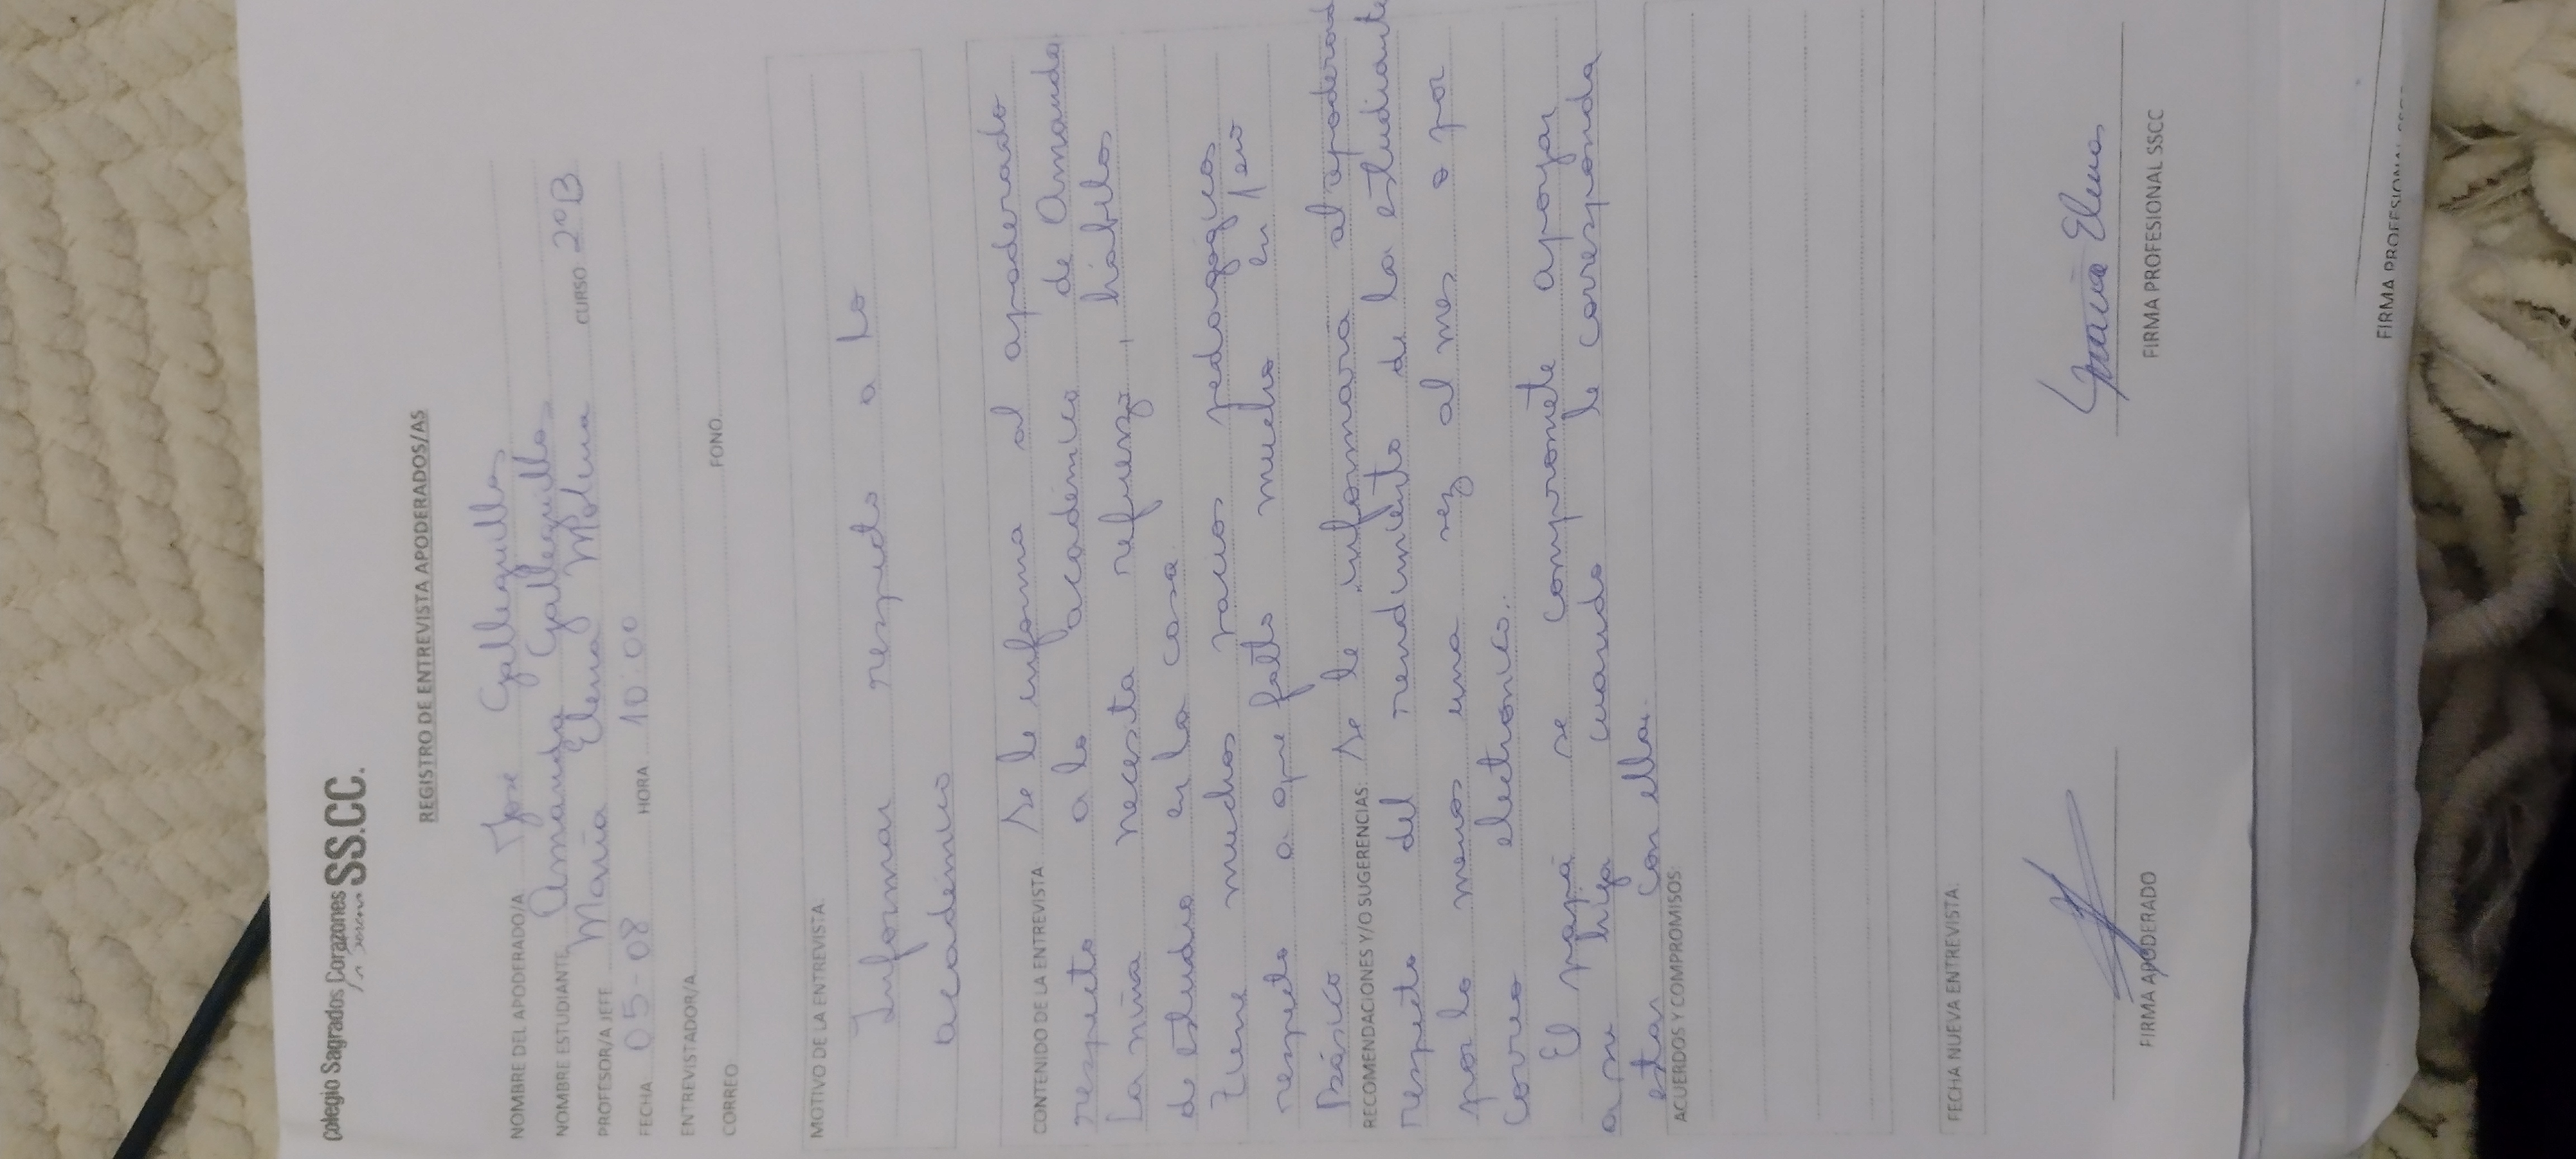 Colegio Sagrados Corazones SS.CC.
La Serena
REGISTRO DE ENTREVISTA APODERADOS/AS
NOMBRE DEL APODERADO/A Jose Galleguillos
NOMBRE ESTUDIANTE Amanda Galleguillos
PROFESOR/A JEFE Maria Elena Molina CURSO 2°B
FECHA 05-08 HORA 10:00
ENTREVISTADOR/A
CORREO FONO
MOTIVO DE LA ENTREVISTA
Informar respeto a lo
academico
CONTENIDO DE LA ENTREVISTA Se le informa al apoderado
respeto a lo académico de Amanda
La niña necesita refuerzo, hábitos
de estudio en la casa.
Tiene muchos vacios pedagógicos
respeto a que falto mucho en 1ero
Básico
RECOMENDACIONES Y/O SUGERENCIAS: Se le informara al apoderado
respeto del rendimiento de la estudiante
por lo menos una vez al mes o por
correo electronico.
El papá se compromete apoyar
a su hija cuando le corresponda
estar con ella.
ACUERDOS Y COMPROMISOS:
FECHA NUEVA ENTREVISTA:
Maria Elena
FIRMA APODERADO FIRMA PROFESIONAL SSCC
FIRMA PROFESIONAL SSCC